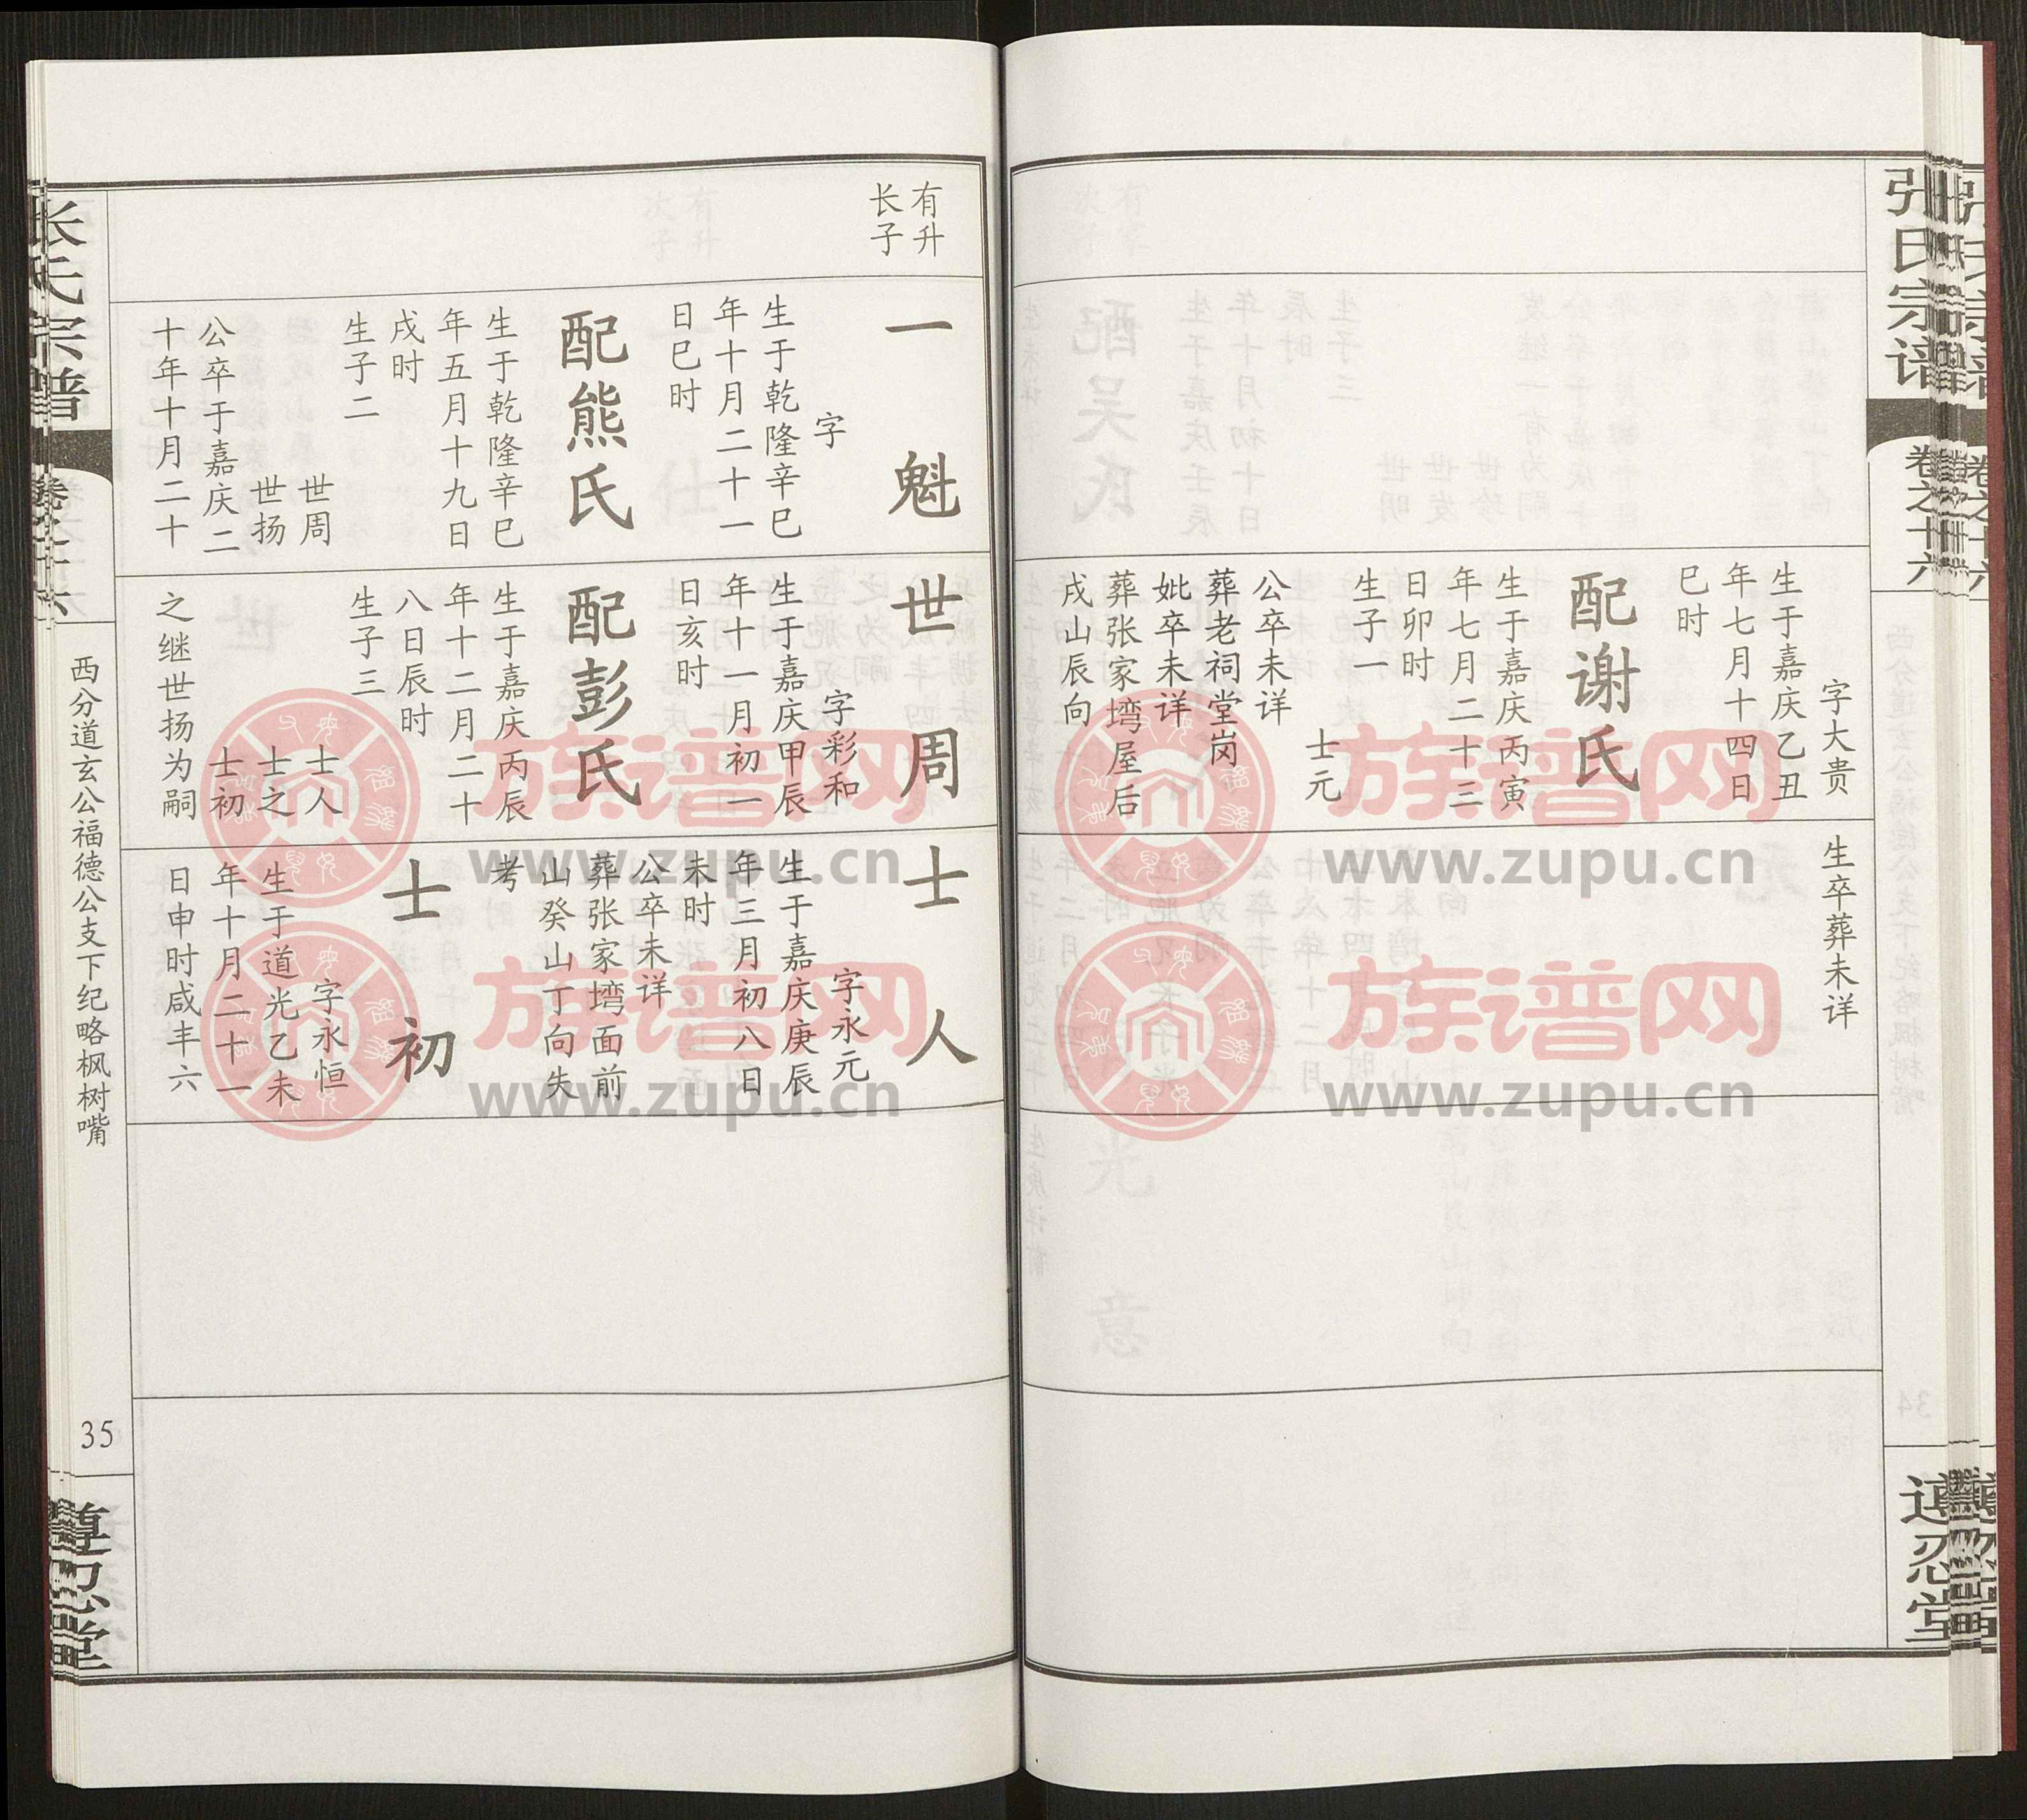 张氏宗谱
卷之十六
遵忍堂
字大贵
生于嘉庆乙丑
年七月十四日
巳时
配谢氏
生于嘉庆丙寅
年七月二十三
日卯时
生子一
士元
公卒未详
葬老祠堂岗
妣卒未详
葬张家塆屋后
戌山辰向
生卒葬未详
有升
长子
一魁
字
生于乾隆辛巳
年十月二十一
日巳时
配熊氏
生于乾隆辛巳
年五月十九日
戌时
生子二
世周
世扬
公卒于嘉庆二
十年十月二十
世周
字彩和
生于嘉庆甲辰
年十一月初一
日亥时
配彭氏
生于嘉庆丙辰
年十二月二十
八日辰时
生子三
士人
士之
士初
之继世扬为嗣
士人
字永元
生于嘉庆庚辰
年三月初八日
未时
公卒未详
葬张家塆面前
山癸山丁向失
考
士初
字永恒
生于道光乙未
年十月二十一
日申时咸丰六
张氏宗谱
卷之十六
西分道玄公福德公支下纪略枫树嘴
35
遵忍堂
族谱网
www.zupu.cn
族谱网
www.zupu.cn
族谱网
www.zupu.cn
族谱网
www.zupu.cn